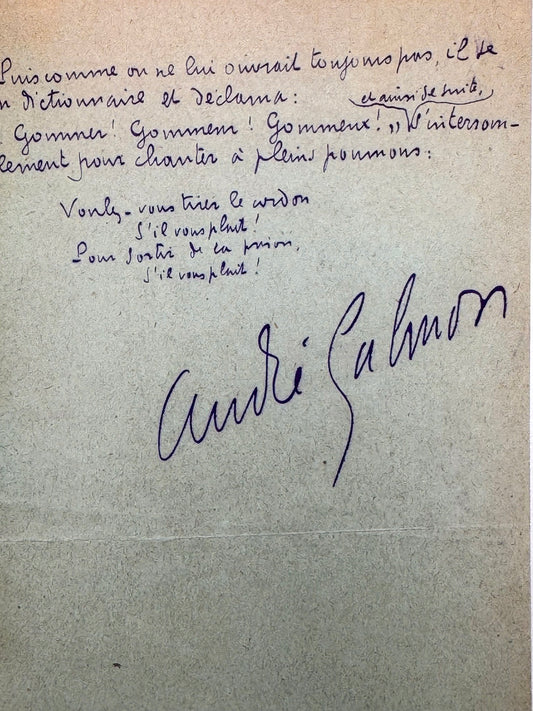 Puis comme on ne lui ouvrait toujours pas, il se
n dictionnaire et déclama:
et ainsi de suite,
! Gommer! Gommeur! Gommeux! „ S'interrom-
lement pour chanter à pleins poumons:
Voulez-vous tirer le cordon
S'il vous plait!
Pour sortir de la prison,
S'il vous plait!
André Salmon